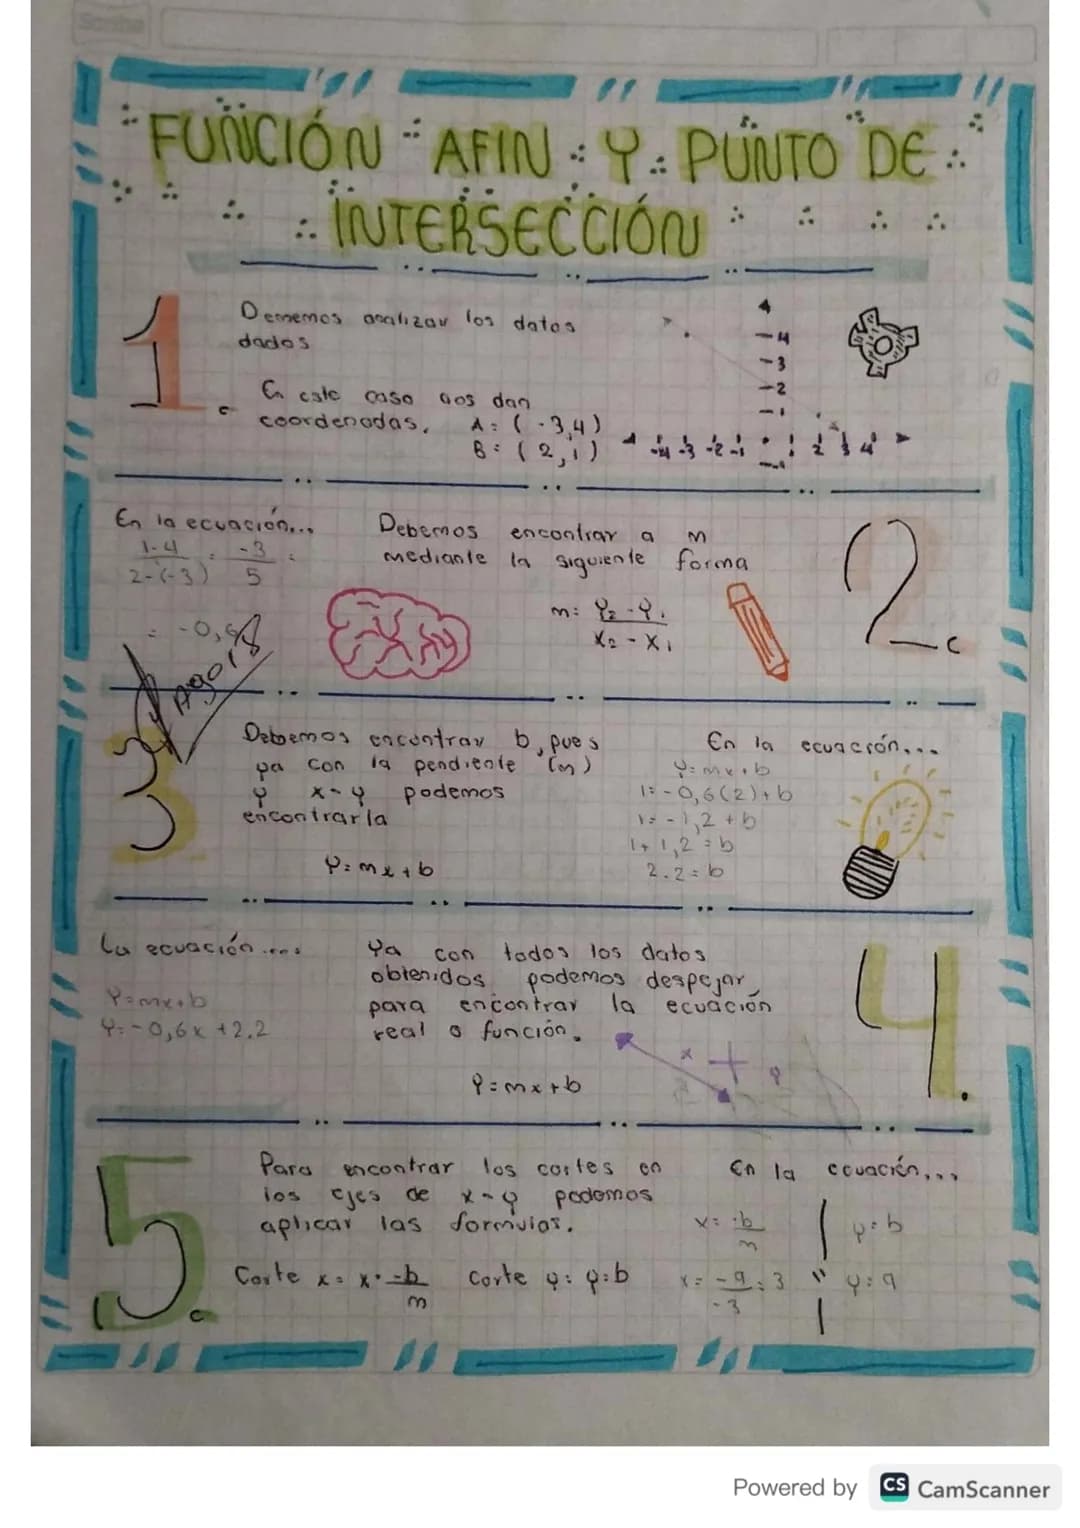 FUNCIÓN AFIN Y PUNTO DE
INTERSECCIÓN
1.
Dememos analizar los datos
dados
En este caso nos dan
coordenadas. A = (-3,4)
B = (2,1)
4
3
2
1
-4 -3 -2 -1 1 2 3 4
-1
2.
En la ecuación...
1-4 = -3 =
2-(-3) 5
= -0,6
Debemos encontrar a m
mediante la siguiente forma
m = Y2 - Y1
X2 - X1
3
Debemos encontrar b, pues
ya con la pendiente (m)
y x-y podemos
encontrarla
Y = mx + b
En la ecuación...
Y = mx + b
1 = -0,6(2) + b
1 = -1,2 + b
1 + 1,2 = b
2.2 = b
4.
La ecuación...
Y = mx + b
Y = -0,6x + 2.2
Ya con todos los datos
obtenidos podemos despejar
para encontrar la ecuación
real o función.
Y = mx + b
x + y
5.
Para encontrar los cortes en
los ejes de x-y podemos
aplicar las formulas.
Corte x = x = -b
m
Corte y: y = b
En la ecuación...
x = -b
m
y = b
x = -9 = 3
-3
y = 9
Powered by CS CamScanner